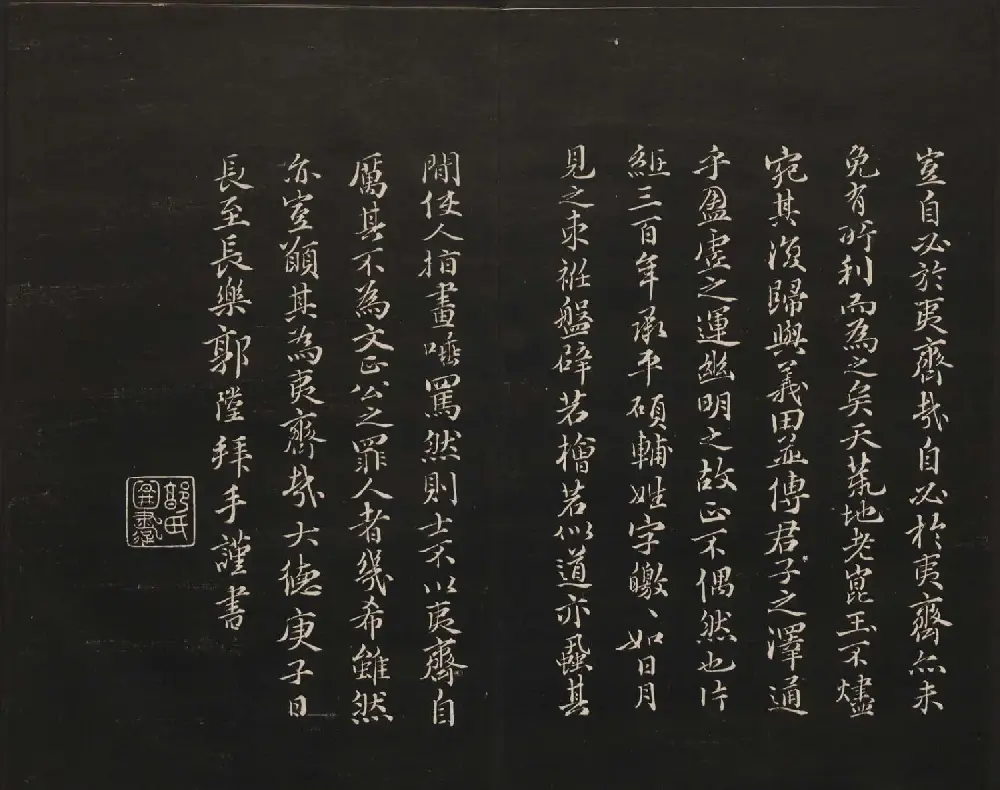 豈自必於夷齊哉自必於夷齊亦未
免有所利而為之矣天荒地老崑玉不燼
宛其復歸與義田並傳君子之澤通
乎盈虛之運幽明之故正不偶然也片
紙三百年承平碩輔姓字皦〻如日月
見之束袵盤辟若檜若似道亦蝨其
間使人指畫唾罵然則士不以夷齊自
厲其不為文正公之罪人者幾希雖然
亦豈願其為夷齊哉大德庚子日
長至長樂郭陞拜手謹書
郭氏圖書